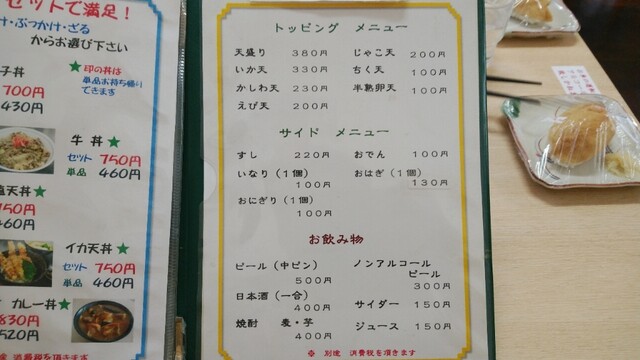 セットで満足！
け・ぶっかけ・ざる
からお選び下さい
子丼
700円
430円
★印の丼は
単品お持ち帰り
できます
牛丼★
セット 750円
単品 460円
塩天丼★
750円
460円
イカ天丼★
セット 750円
単品 460円
カレー丼★
830円
520円
トッピング メニュー
天盛り 380円 じゃこ天 200円
いか天 330円 ちく天 100円
かしわ天 230円 半熟卵天 100円
えび天 200円
サイド メニュー
すし 220円 おでん 100円
いなり（1個） おはぎ（1個）
100円 130円
おにぎり（1個）
100円
お飲み物
ビール（中ビン） ノンアルコール
500円 ビール
日本酒（一合） 300円
400円 サイダー 150円
焼酎 麦・芋
400円 ジュース 150円
※ 別途 消費税を頂きます